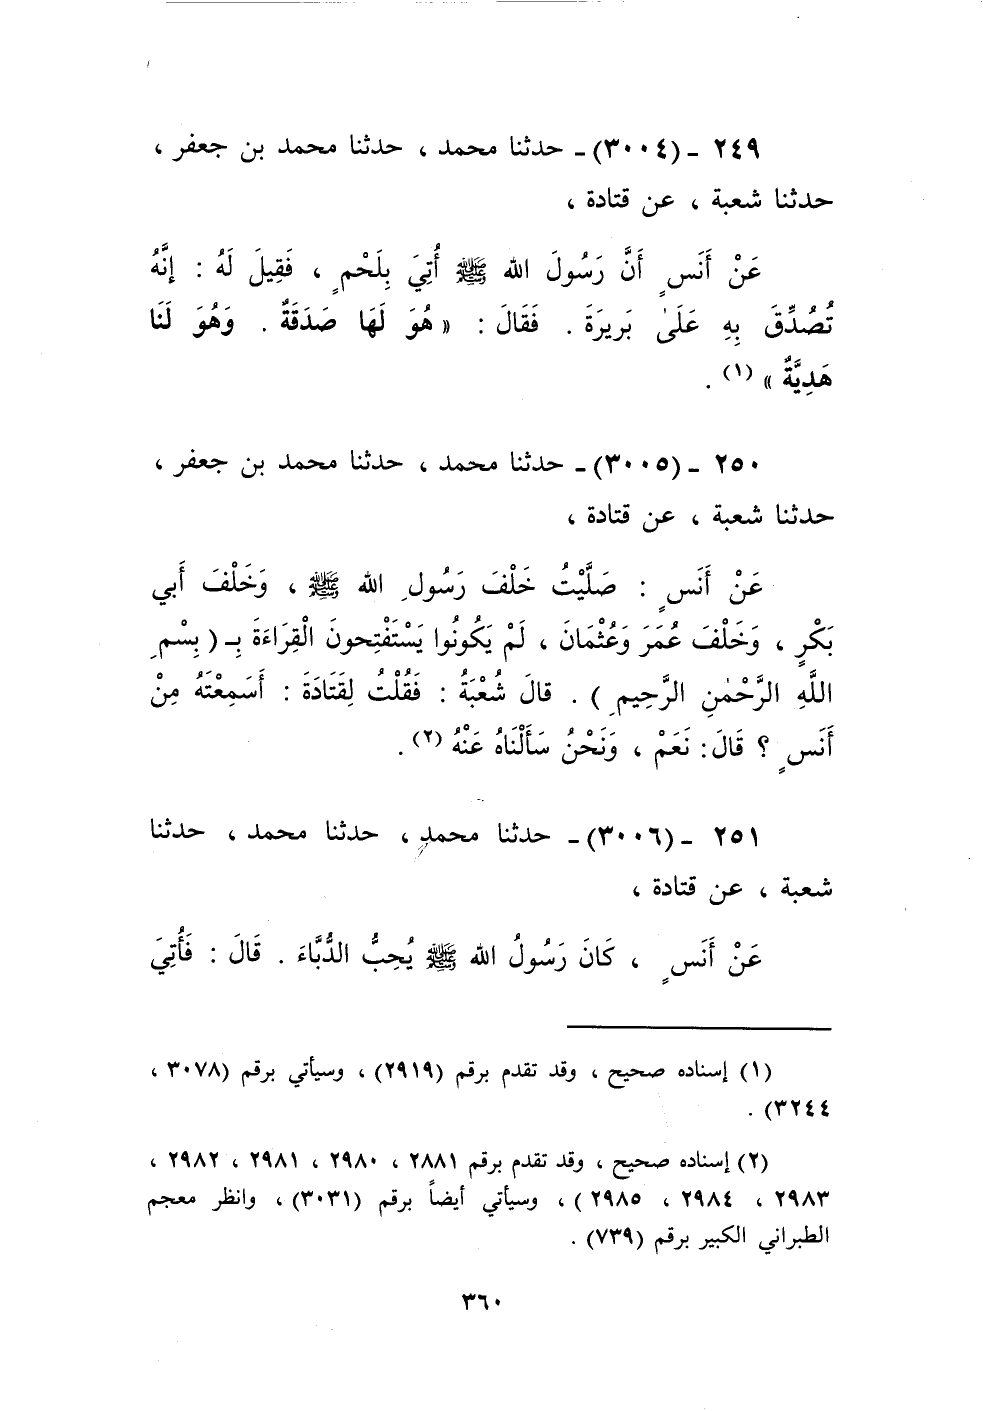 ٢٤٩ - (٣٠٠٤) - حدثنا محمد ، حدثنا محمد بن جعفر ،
حدثنا شعبة ، عن قتادة ،
عَنْ أَنَسٍ أَنَّ رَسُولَ الله ﷺ أُتِيَ بِلَحْمٍ ، فَقِيلَ لَهُ : إِنَّهُ
تُصُدِّقَ بِهِ عَلَىٰ بَرِيرَةَ . فَقَالَ : « هُوَ لَهَا صَدَقَةٌ . وَهُوَ لَنَا
هَدِيَّةٌ » (١) .
٢٥٠ - (٣٠٠٥) - حدثنا محمد ، حدثنا محمد بن جعفر ،
حدثنا شعبة ، عن قتادة ،
عَنْ أَنَسٍ : صَلَّيْتُ خَلْفَ رَسُولِ الله ﷺ ، وَخَلْفَ أَبي
بَكْرٍ ، وَخَلْفَ عُمَرَ وَعُثْمَانَ ، لَمْ يَكُونُوا يَسْتَفْتِحونَ الْقِرَاءَةَ بِـ ( بِسْمِ
اللَّهِ الرَّحْمٰنِ الرَّحِيمِ ) . قالَ شُعْبَةُ : فَقُلْتُ لِقَتَادَةَ : أَسَمِعْتَهُ مِنْ
أَنَسٍ ؟ قَالَ: نَعَمْ ، وَنَحْنُ سَأَلْنَاهُ عَنْهُ (٢) .
٢٥١ - (٣٠٠٦) - حدثنا محمد ، حدثنا محمد ، حدثنا
شعبة ، عن قتادة ،
عَنْ أَنَسٍ ، كَانَ رَسُولُ الله ﷺ يُحِبُّ الدُّبَّاءَ . قَالَ : فَأُتِيَ
(١) إسناده صحيح ، وقد تقدم برقم (٢٩١٩) ، وسيأتي برقم (٣٠٧٨ ،
٣٢٤٤) .
(٢) إسناده صحيح ، وقد تقدم برقم ٢٨٨١ ، ٢٩٨٠ ، ٢٩٨١ ، ٢٩٨٢ ،
٢٩٨٣ ، ٢٩٨٤ ، ٢٩٨٥ ) ، وسيأتي أيضاً برقم (٣٠٣١) ، وانظر معجم
الطبراني الكبير برقم (٧٣٩) .
٣٦٠